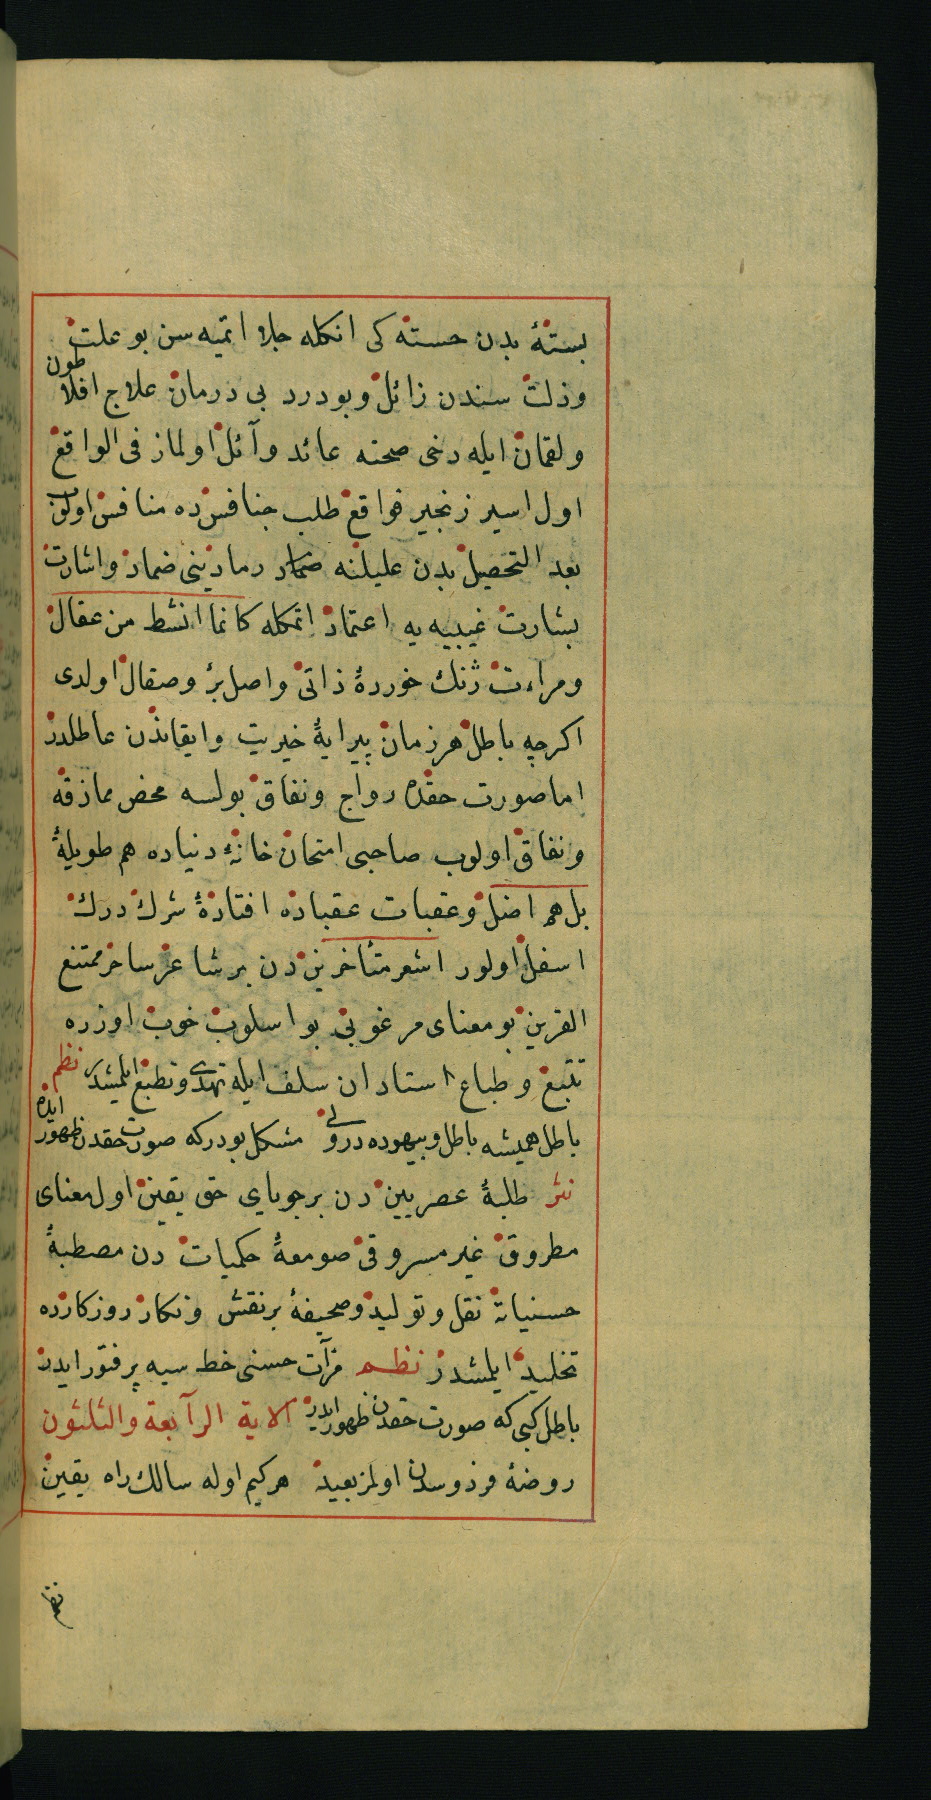 بستهٔ بدن حسته کی انکله جلا اتمیه سن بو علت
وذلت سندن زائل وبودرد بی درمان علاج افلاطون
ولقمان ایله دخی صحته عائد وآئل اولماز فی الواقع
اول اسیر زنجیر فواقع طلب جنافس ده منافس اولوب
بعد التحصیل بدن علیلنه ضماد رمادینی ضماد واشارت
بشارت غیبیه یه اعتماد اتمکله کانما انشط من عقال
ومراءت ژنك خوردهٔ ذاتی واصل برؤ وصقال اولدی
اکرچه باطل هر زمان پیرایهٔ خیریت وایقاندن عاطلدر
اما صورت حقده رواج ونفاق بولسه محض مماذقه
ونفاق اولوب صاحبی امتحان خانهٔ دنیاده هم طویلهٔ
بل هم اضل وعقبات عقباده افتادهٔ شرك درك
اسفل اولور اشعر متأخرین دن بر شاعر ساخر ممتنع
القرین بو معنای مرغوبی بو اسلوب خوب اوزره
تتبع وطباع استادان سلف ایله تهدی وتطبع ایلمشدر نظم
باطل همیشه باطل وبیهوده در ولی مشکل بودر که صورت حقدن ظهور ایده
نثر طلبهٔ عصریین دن بر جویای حق یقین اول معنای
مطروق غیر مسروقی صومعهٔ حکمیات دن مصطبهٔ
حسنیاته نقل وتولید وصحیفهٔ پر نقش ونکار روزکارده
تخلید ایلمشدر نظم مرآت حسنی خط سیه پر فتور ایدر
باطل کبی که صورت حقدن ظهور ایدر الایة الرابعة والثلثون
روضهٔ فردوسدن اولمز بعید هر کیم اوله سالك راه یقین
نظم